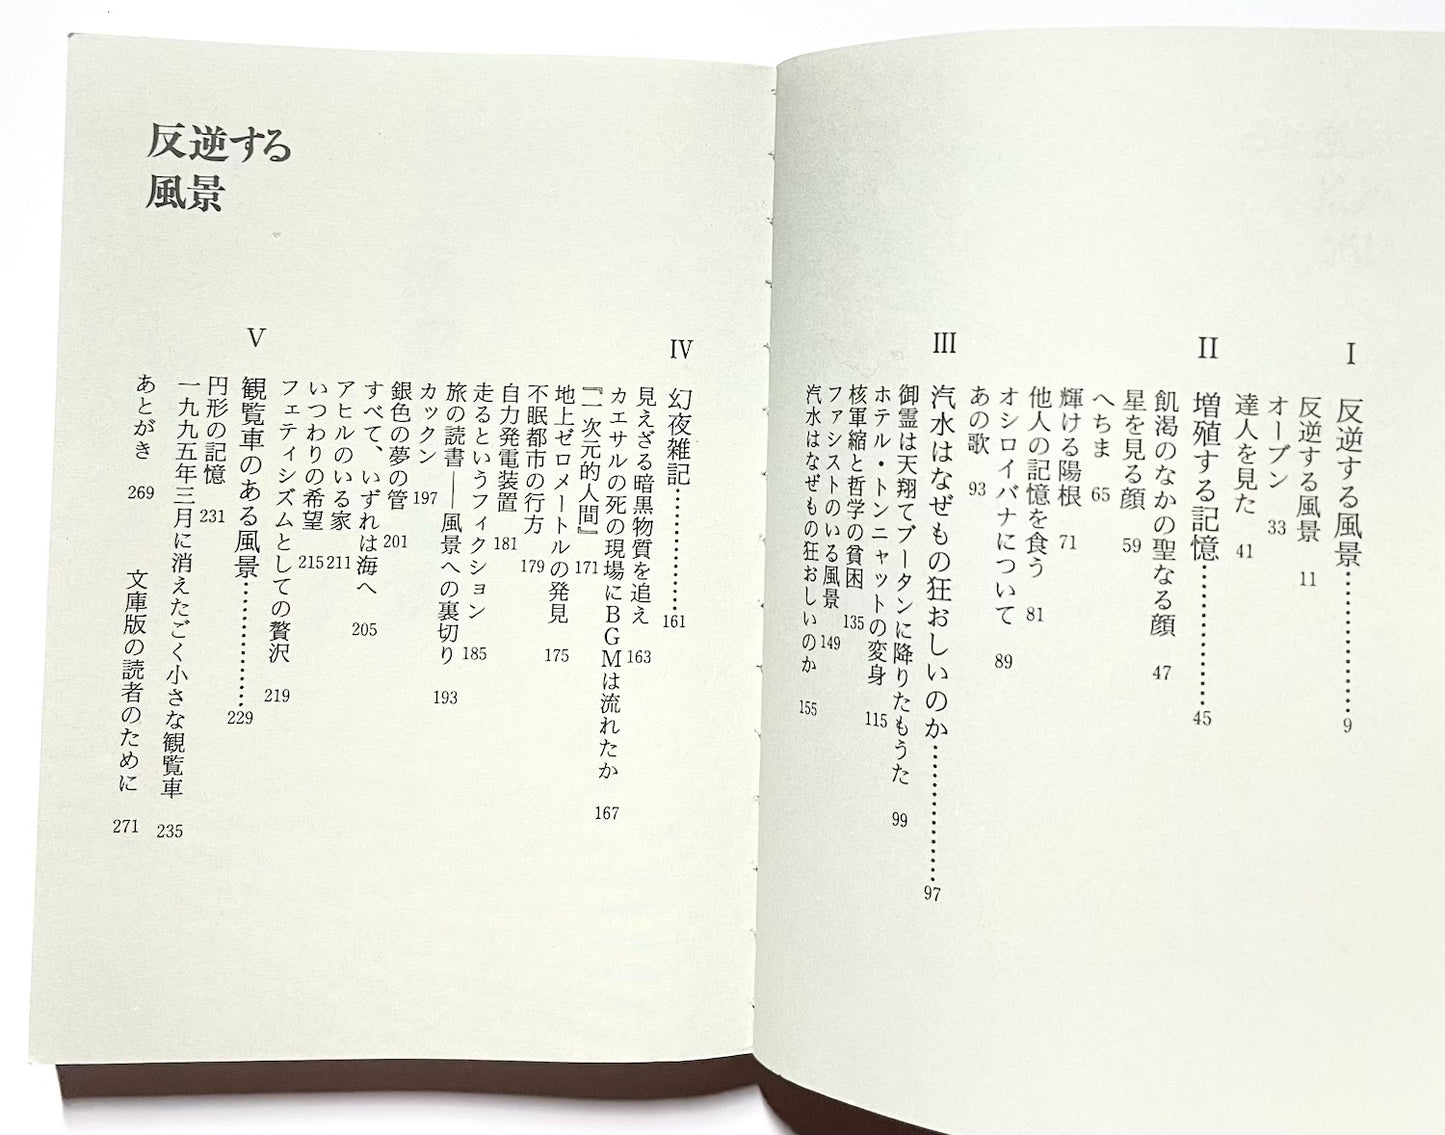 I
反逆する風景……………9
反逆する風景 11
オーブン 33
達人を見た 41
II
増殖する記憶……………45
飢渇のなかの聖なる顔 47
星を見る顔 59
へちま 65
輝ける陽根 71
他人の記憶を食う 81
オシロイバナについて 89
あの歌 93
III
汽水はなぜもの狂おしいのか……………97
御霊は天翔てブータンに降りたもうた 99
ホテル・トンニャットの変身 115
核軍縮と哲学の貧困 135
ファシストのいる風景 149
汽水はなぜもの狂おしいのか 155
反逆する
風景
IV
幻夜雑記……………161
見えざる暗黒物質を追え 163
カエサルの死の現場にBGMは流れたか 167
『一次元的人間』 171
地上ゼロメートルの発見 175
不眠都市の行方 179
自力発電装置 181
走るというフィクション 185
旅の読書――風景への裏切り 193
カックン 197
銀色の夢の管 201
すべて、いずれは海へ 205
アヒルのいる家 211
いつわりの希望 215
フェティシズムとしての贅沢 219
V
観覧車のある風景……………229
円形の記憶 231
一九九五年三月に消えたごく小さな観覧車 235
あとがき 269
文庫版の読者のために 271